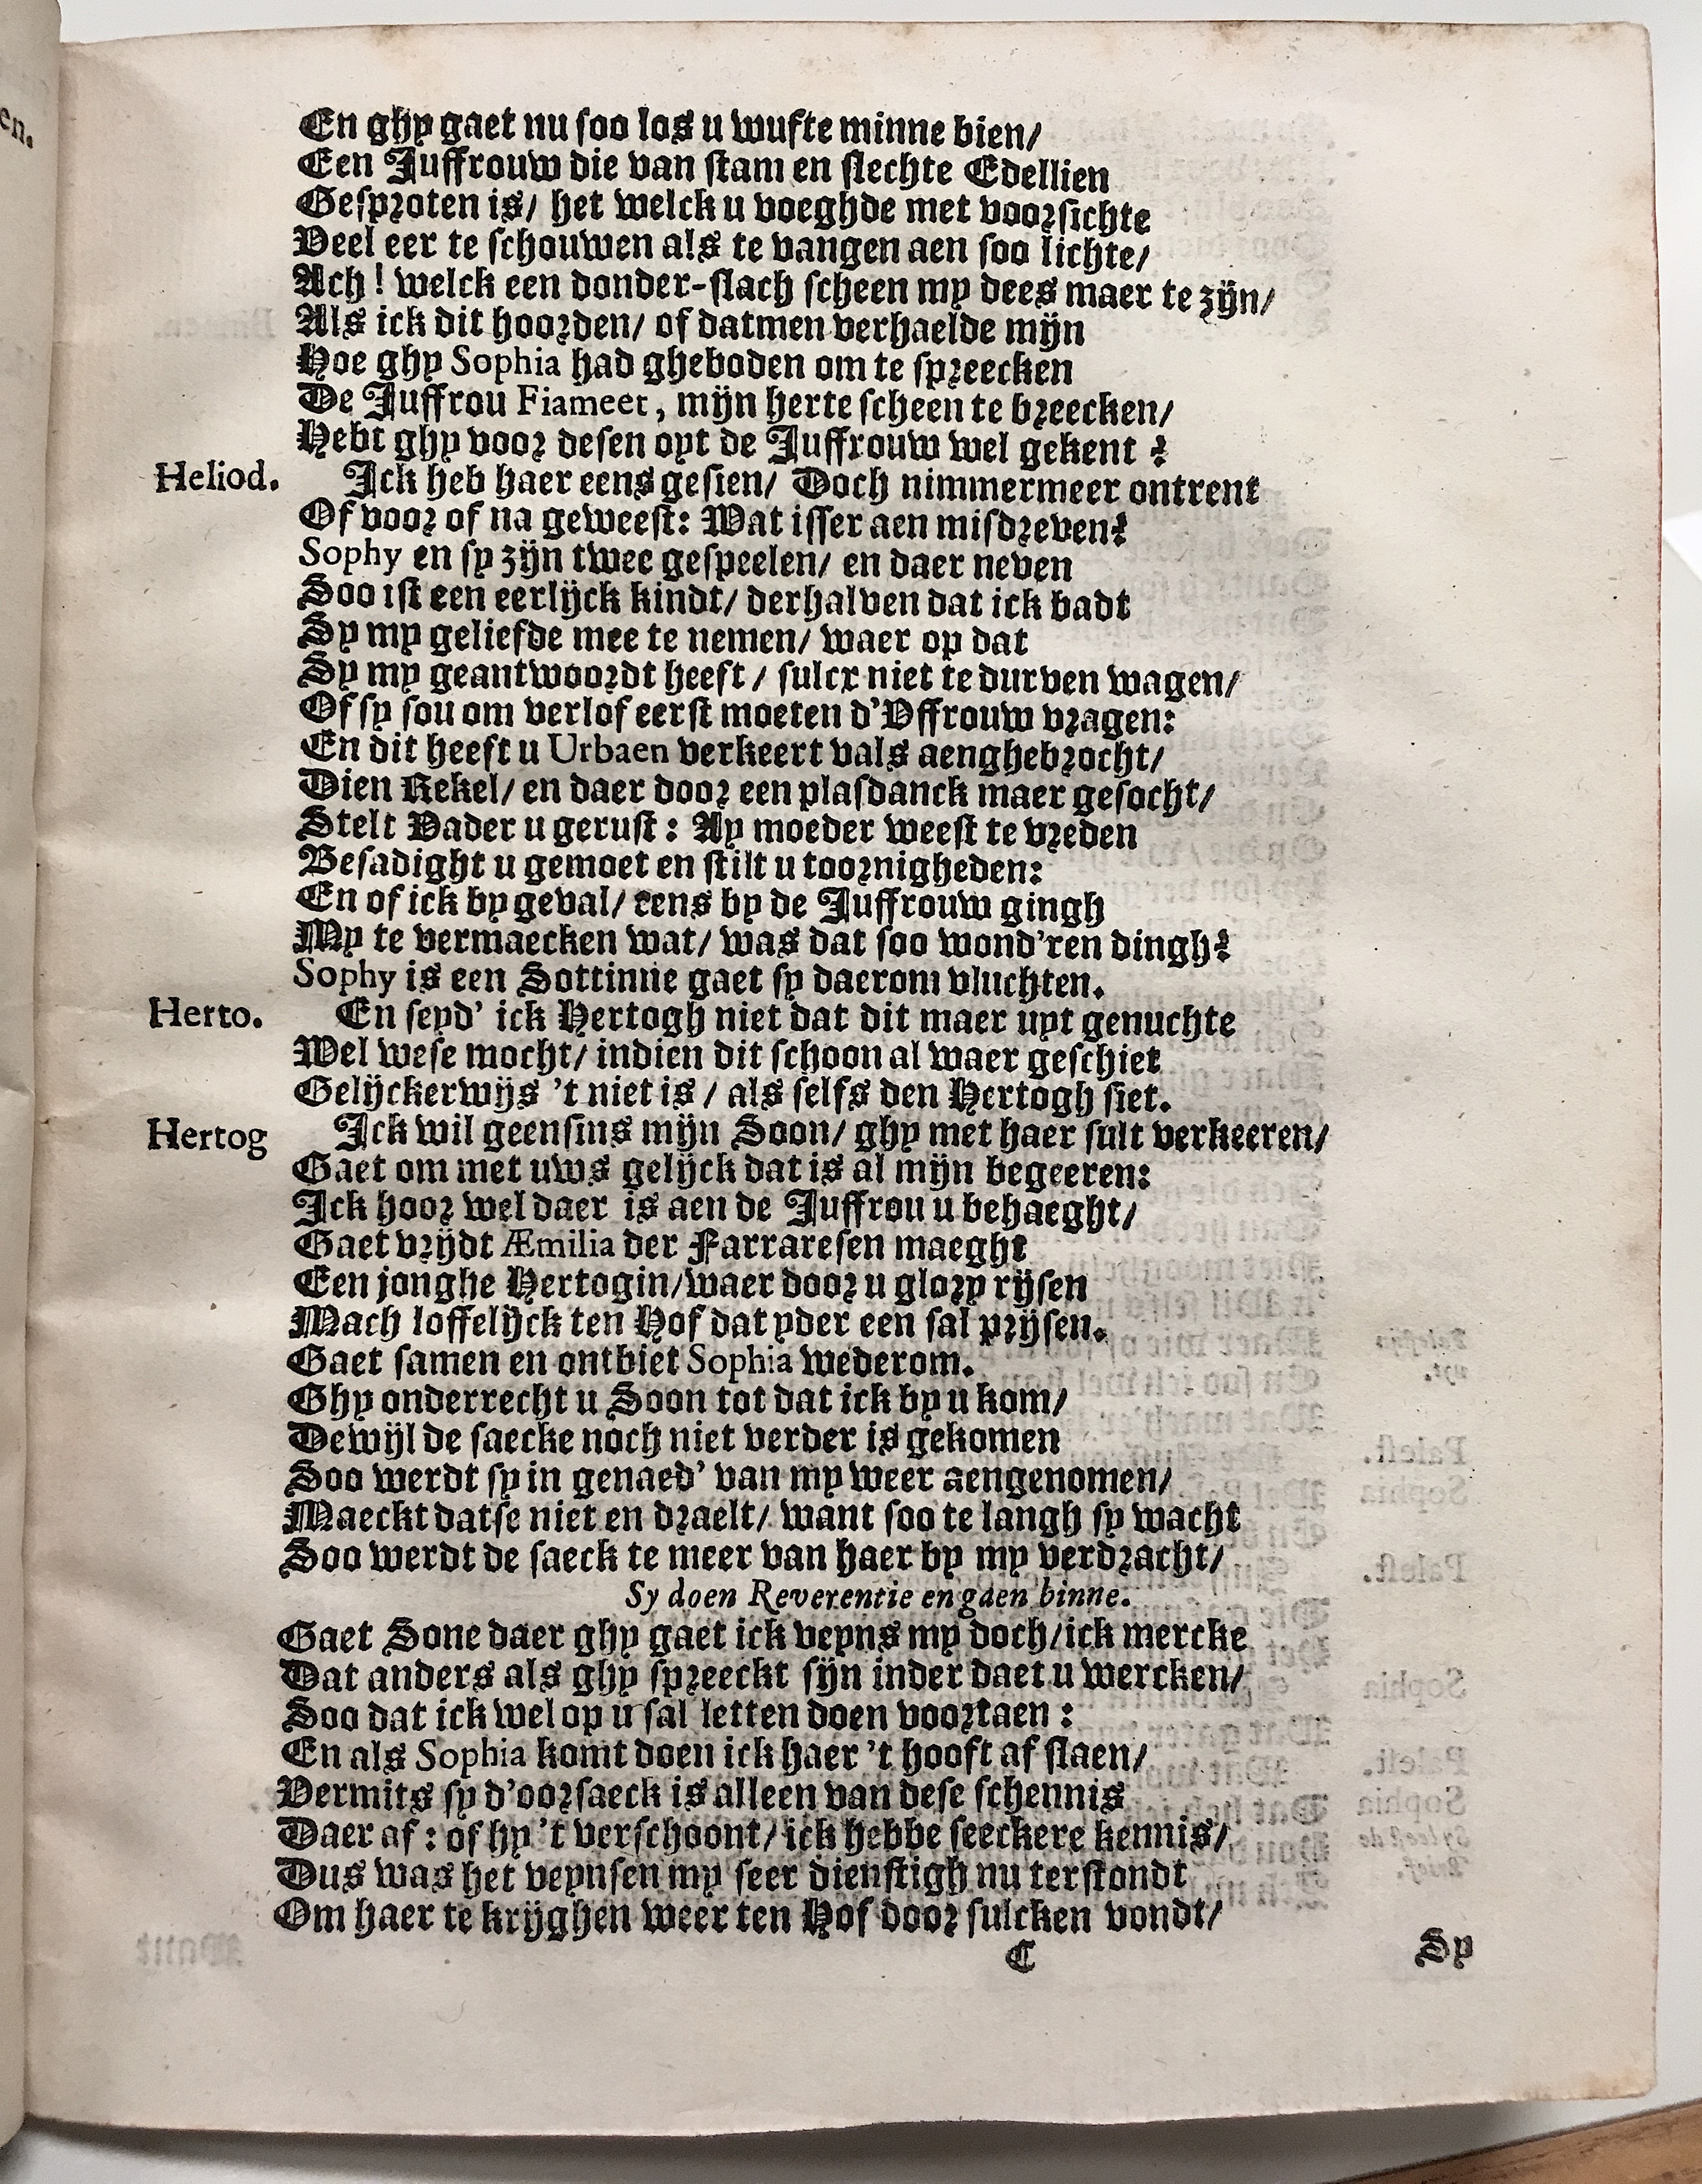 En ghy gaet nu soo los u wufte minne bien/
Een Juffrouw die van stam en slechte Edellien
Gesproten is/ het welck u voeghde met voorsichte
Veel eer te schouwen als te vangen aen soo lichte/
Ach! welck een donder-slach scheen my dees maer te zijn/
Als ick dit hoorden/ of datmen verhaelde mijn
Hoe ghy Sophia had gheboden om te spreecken
De Juffrou Fiameet, mijn herte scheen te breecken/
Hebt ghy voor desen oyt de Juffrouw wel gekent?
Heliod. Ick heb haer eens gesien/ Doch nimmermeer ontrent
Of voor of na geweest: Wat isser aen misdreven?
Sophy en sy zijn twee gespeelen/ en daer neven
Soo ist een eerlijck kindt/ derhalven dat ick badt
Sy my geliefde mee te nemen/ waer op dat
Sy my geantwoordt heeft/ sulcx niet te durven wagen/
Of sy sou om verlof eerst moeten d'Yffrouw vragen:
En dit heeft u Urbaen verkeert vals aenghebrocht/
Dien Rekel/ en daer door een plasdanck maer gesocht/
Stelt Vader u gerust: Ay moeder weest te vreden
Besadight u gemoet en stilt u toornigheden:
En of ick by geval/ eens by de Juffrouw gingh
My te vermaecken wat/ was dat soo wond'ren dingh?
Sophy is een Sottinne gaet sy daerom vluchten.
Herto. En seyd' ick Hertogh niet dat dit maer uyt genuchte
Wel wese mocht/ indien dit schoon al waer geschiet
Gelijckerwijs 't niet is/ als selfs den Hertogh siet.
Hertog Ick wil geensins mijn Soon/ ghy met haer sult verkeeren/
Gaet om met uws gelijck dat is al mijn begeeren:
Ick hoor wel daer is aen de Juffrou u behaeght/
Gaet vrijdt Æmilia der Farraresen maeght
Een jonghe Hertogin/ waer door u glory rijsen
Mach loffelijck ten Hof dat yder een sal prijsen.
Gaet samen en ontbiet Sophia wederom.
Ghy onderrecht u Soon tot dat ick by u kom/
Dewijl de saecke noch niet verder is gekomen
Soo werdt sy in genaed' van my weer aengenomen/
Maeckt datse niet en draelt/ want soo te langh sy wacht
Soo werdt de saeck te meer van haer by my verdracht/
Sy doen Reverentie en gaen binne.
Gaet Sone daer ghy gaet ick veyns my doch/ ick mercke
Dat anders als ghy spreeckt sijn inder daet u wercken/
Soo dat ick wel op u sal letten doen voortaen:
En als Sophia komt doen ick haer 't hooft af slaen/
Vermits sy d'oorsaeck is alleen van dese schennis
Daer af: of hy 't verschoont/ ick hebbe seeckere kennis/
Dus was het veynsen my seer dienstigh nu terstondt
Om haer te krijghen weer ten Hof door sulcken vondt/
C Sy